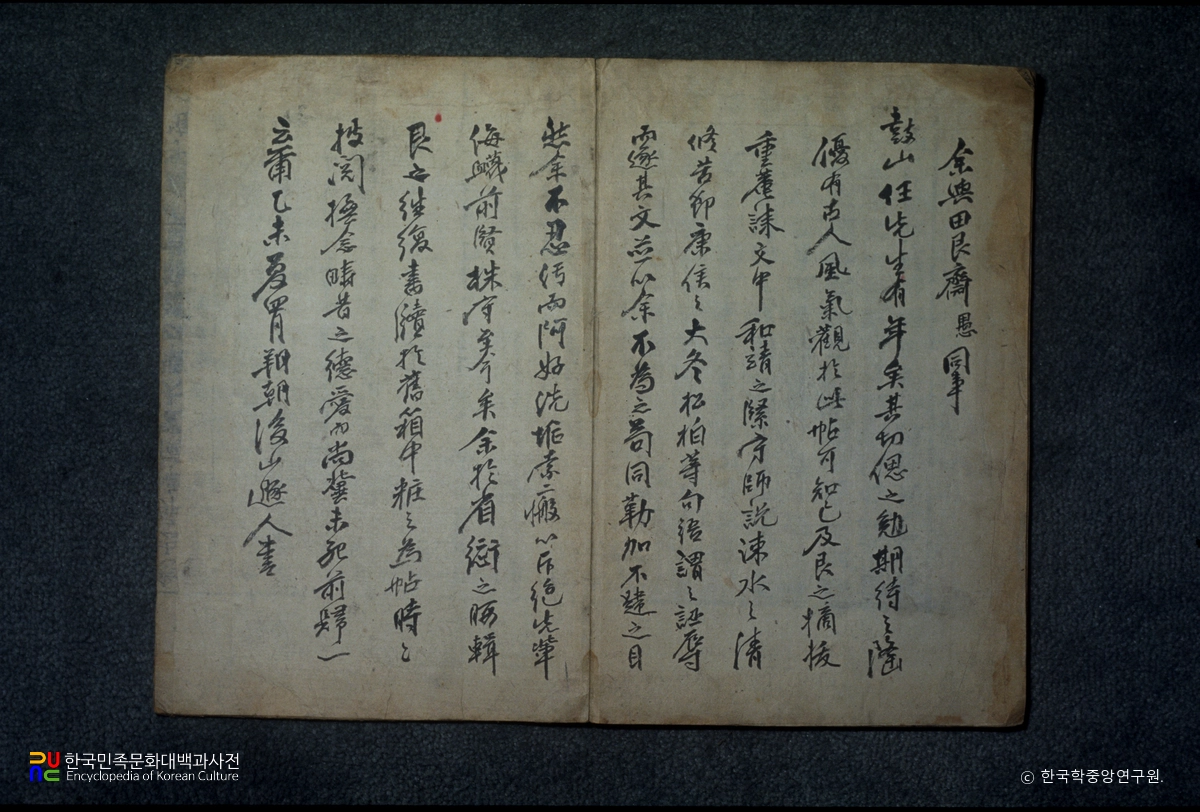 余與田艮齋愚同事
鼓山任先生有年矣其切偲之勉期待之隆
優有古人風氣觀於此帖可知已及艮之摘抉
重菴誄文中和靖之緊守師說涑水之清
修苦節康侯之大冬松柏等句語謂之誣辱
而逐其文並以余不爲之苟同勒加不韙之目
然余不忍污而阿好洗垢索瘢以斥絶先輩
侮蔑前賢株守矣余於省愆之暇輯
艮之往復書牘於舊箱中粧之爲帖時之
披閱撫念疇昔之德愛而尙冀未死前歸一
云爾乙未夏胃朔朝後山遯人書
한국민족문화대백과사전
Encyclopedia of Korean Culture
© 한국학중앙연구원.